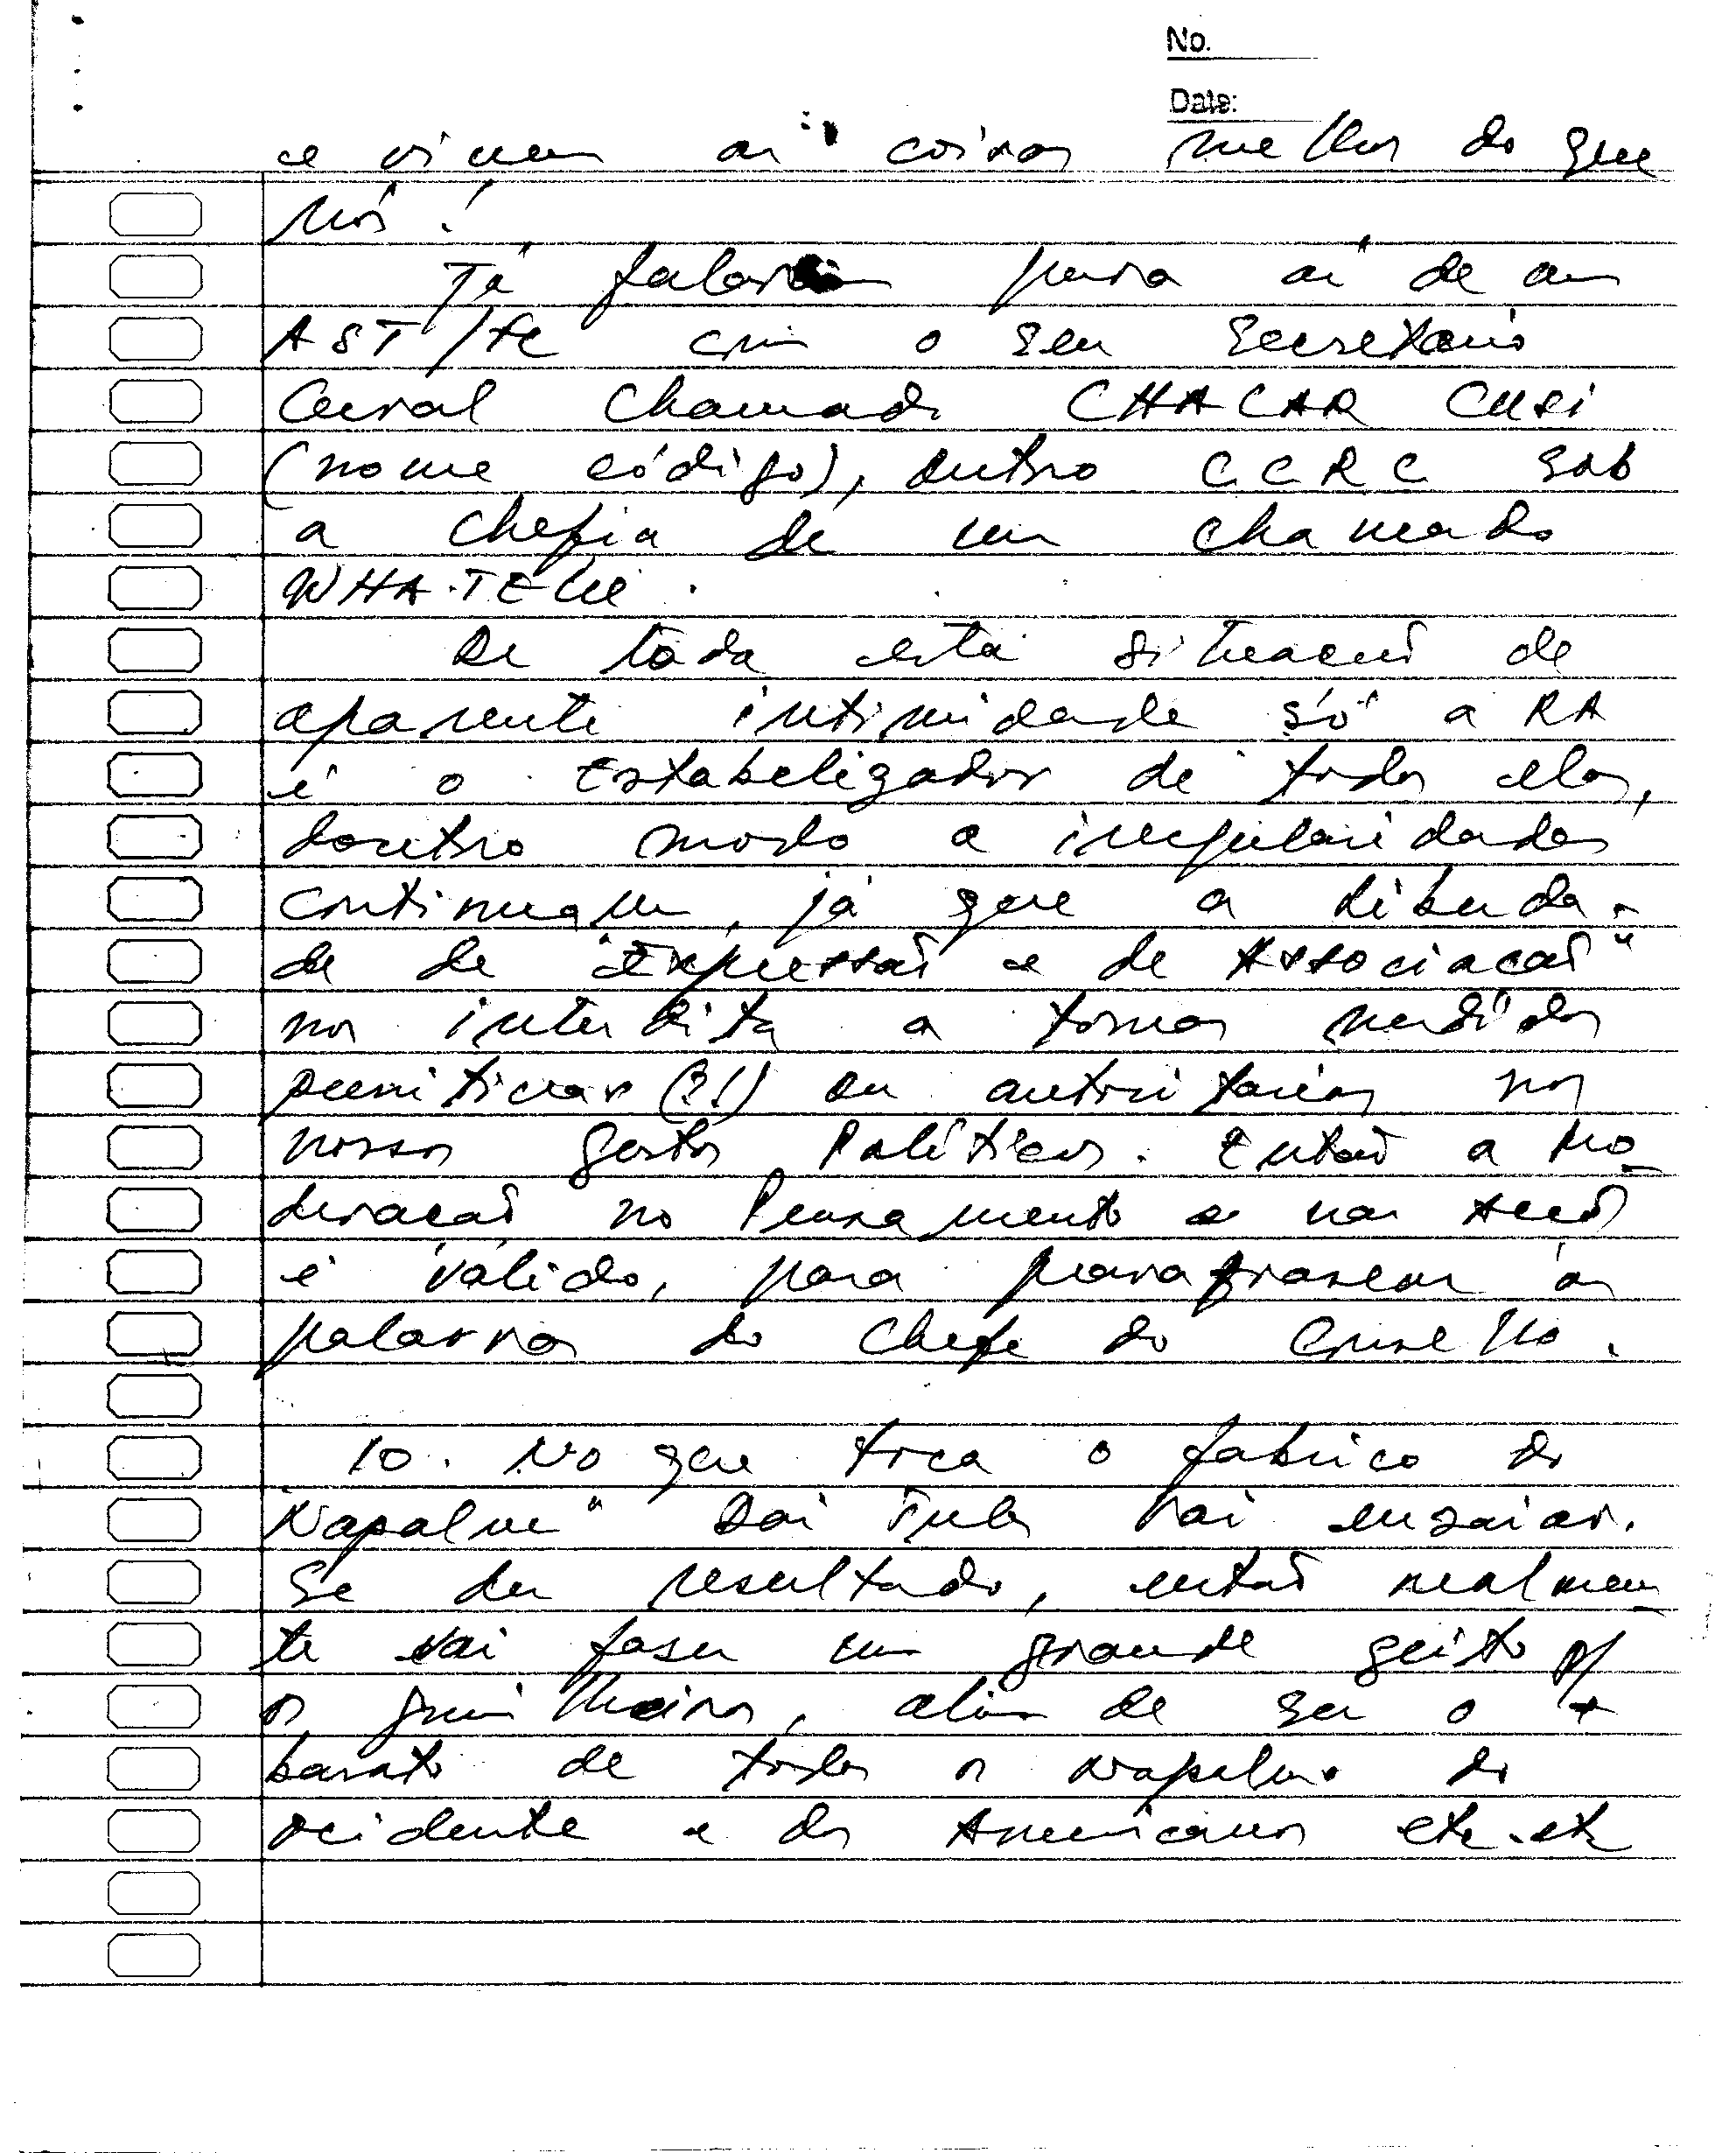 No.
Date:
e viram as coisas melhor do que
nós!
Já falaram para aí de um
AST/FC com o seu Secretário
Geral chamado CHACAR CUSI
(nome código), outro C.C.R.C. sob
a chefia de um chamado
WHA-TELI.
De toda esta situação de
aparente intimidade só a RA
é o Estabeligador de todos elas,
doutro modo a irregularidades
continuam, já que a liberda-
de de "Expressão e de Associação"
nos interdita a tomar medidas
punitivas (?!) ou autoritárias nos
nossos gestos Políticos. Então a Mo-
deração no Pensamento e nas Acções
é válido, para parafrasear as
palavras do Chefe do Conselho.
10. No que toca o fabrico do
Napalm" Sai vai ensaiar.
Se der resultado, então realmen-
te vai fazer um grande geito p/
os guerrilheiros, além de ser o +
barato de todos os napalms do
ocidente e dos Americanos etc. etc